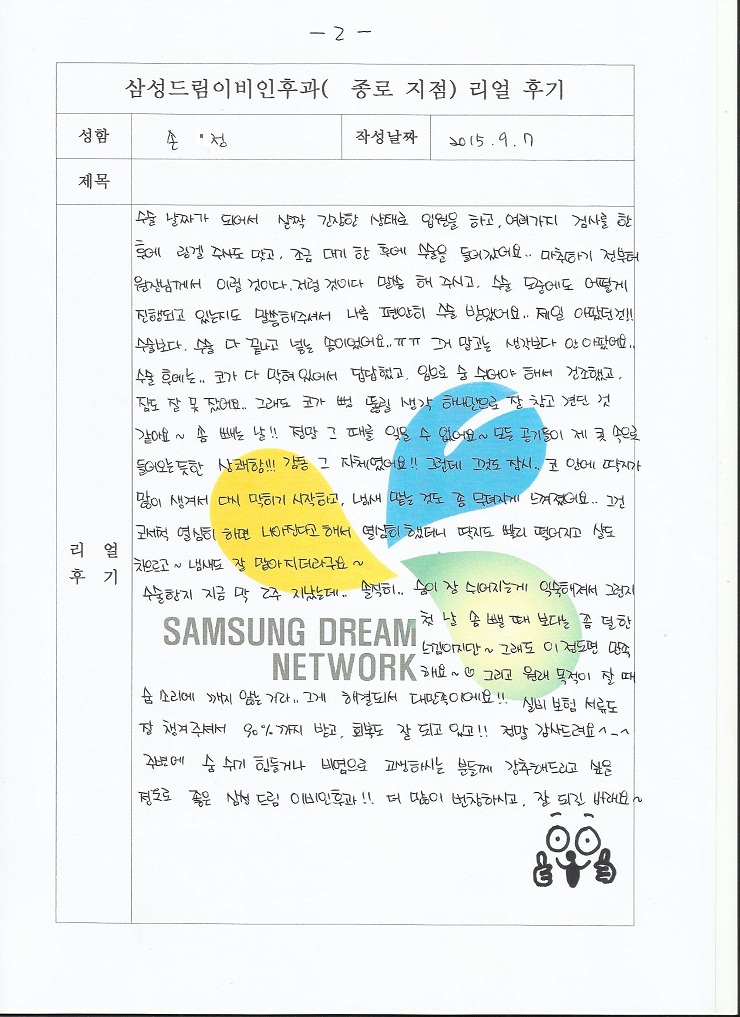 - 2 -
삼성드림이비인후과( 종로 지점) 리얼 후기
성함 손 정 작성날짜 2015. 9. 7
제목
수술 날짜가 되어서 살짝 긴장한 상태로 입원을 하고, 여러가지 검사를 한
후에 링겔 주사도 맞고, 조금 대기 한 후에 수술을 들어갔어요.. 마취하기 전부터
원장님께서 이럴 것이다, 저럴 것이다 말씀 해 주시고, 수술 도중에도 어떻게
진행되고 있는지도 말씀해주셔서 나름 편안히 수술 받았어요.. 제일 아팠던건!!
수술보다, 수술 다 끝나고 넣는 솜이었어요..ㅠㅠ 그거 말고는 생각보다 안 아팠어요..
수술 후에는.. 코가 다 막혀 있어서 답답했고, 입으로 숨 쉬어야 해서 건조했고,
잠도 잘 못 잤어요.. 그래도 코가 뻥 뚫릴 생각 하나만으로 잘 참고 견딘 것
같아요~ 솜 빼는 날!! 정말 그 때를 잊을 수 없어요~ 모든 공기들이 제 콧 속으로
들어오는듯한 상쾌함!!! 감동 그 자체였어요!! 그런데 그것도 잠시.. 코 안에 딱지가
많이 생겨서 다시 막히기 시작하고, 냄새 맡는 것도 좀 무뎌지게 느껴졌어요.. 그건
코세척 열심히 하면 나아진다고 해서 열심히 했더니 딱지도 빨리 떨어지고 살도
차오르고~ 냄새도 잘 맡아지더라구요~
수술한지 지금 막 2주 지났는데.. 솔직히.. 숨이 잘 쉬어지는게 익숙해져서 그런지
첫 날 솜 뺄 때 보다는 좀 덜한
느낌이지만~ 그래도 이 정도면 만족
해요~☺ 그리고 원래 목적이 잘 때
숨 소리에 깨지 않는 거라.. 그게 해결되서 대만족이에요!! 실비 보험 서류도
잘 챙겨주셔서 90%까지 받고, 회복도 잘 되고 있고!! 정말 감사드려요^-^
주변에 숨 쉬기 힘들거나 비염으로 고생하시는 분들께 강추해드리고 싶을
정도로 좋은 삼성 드림 이비인후과!! 더 많이 번창하시고, 잘 되길 바래요~
리 얼
후 기
SAMSUNG DREAM
NETWORK